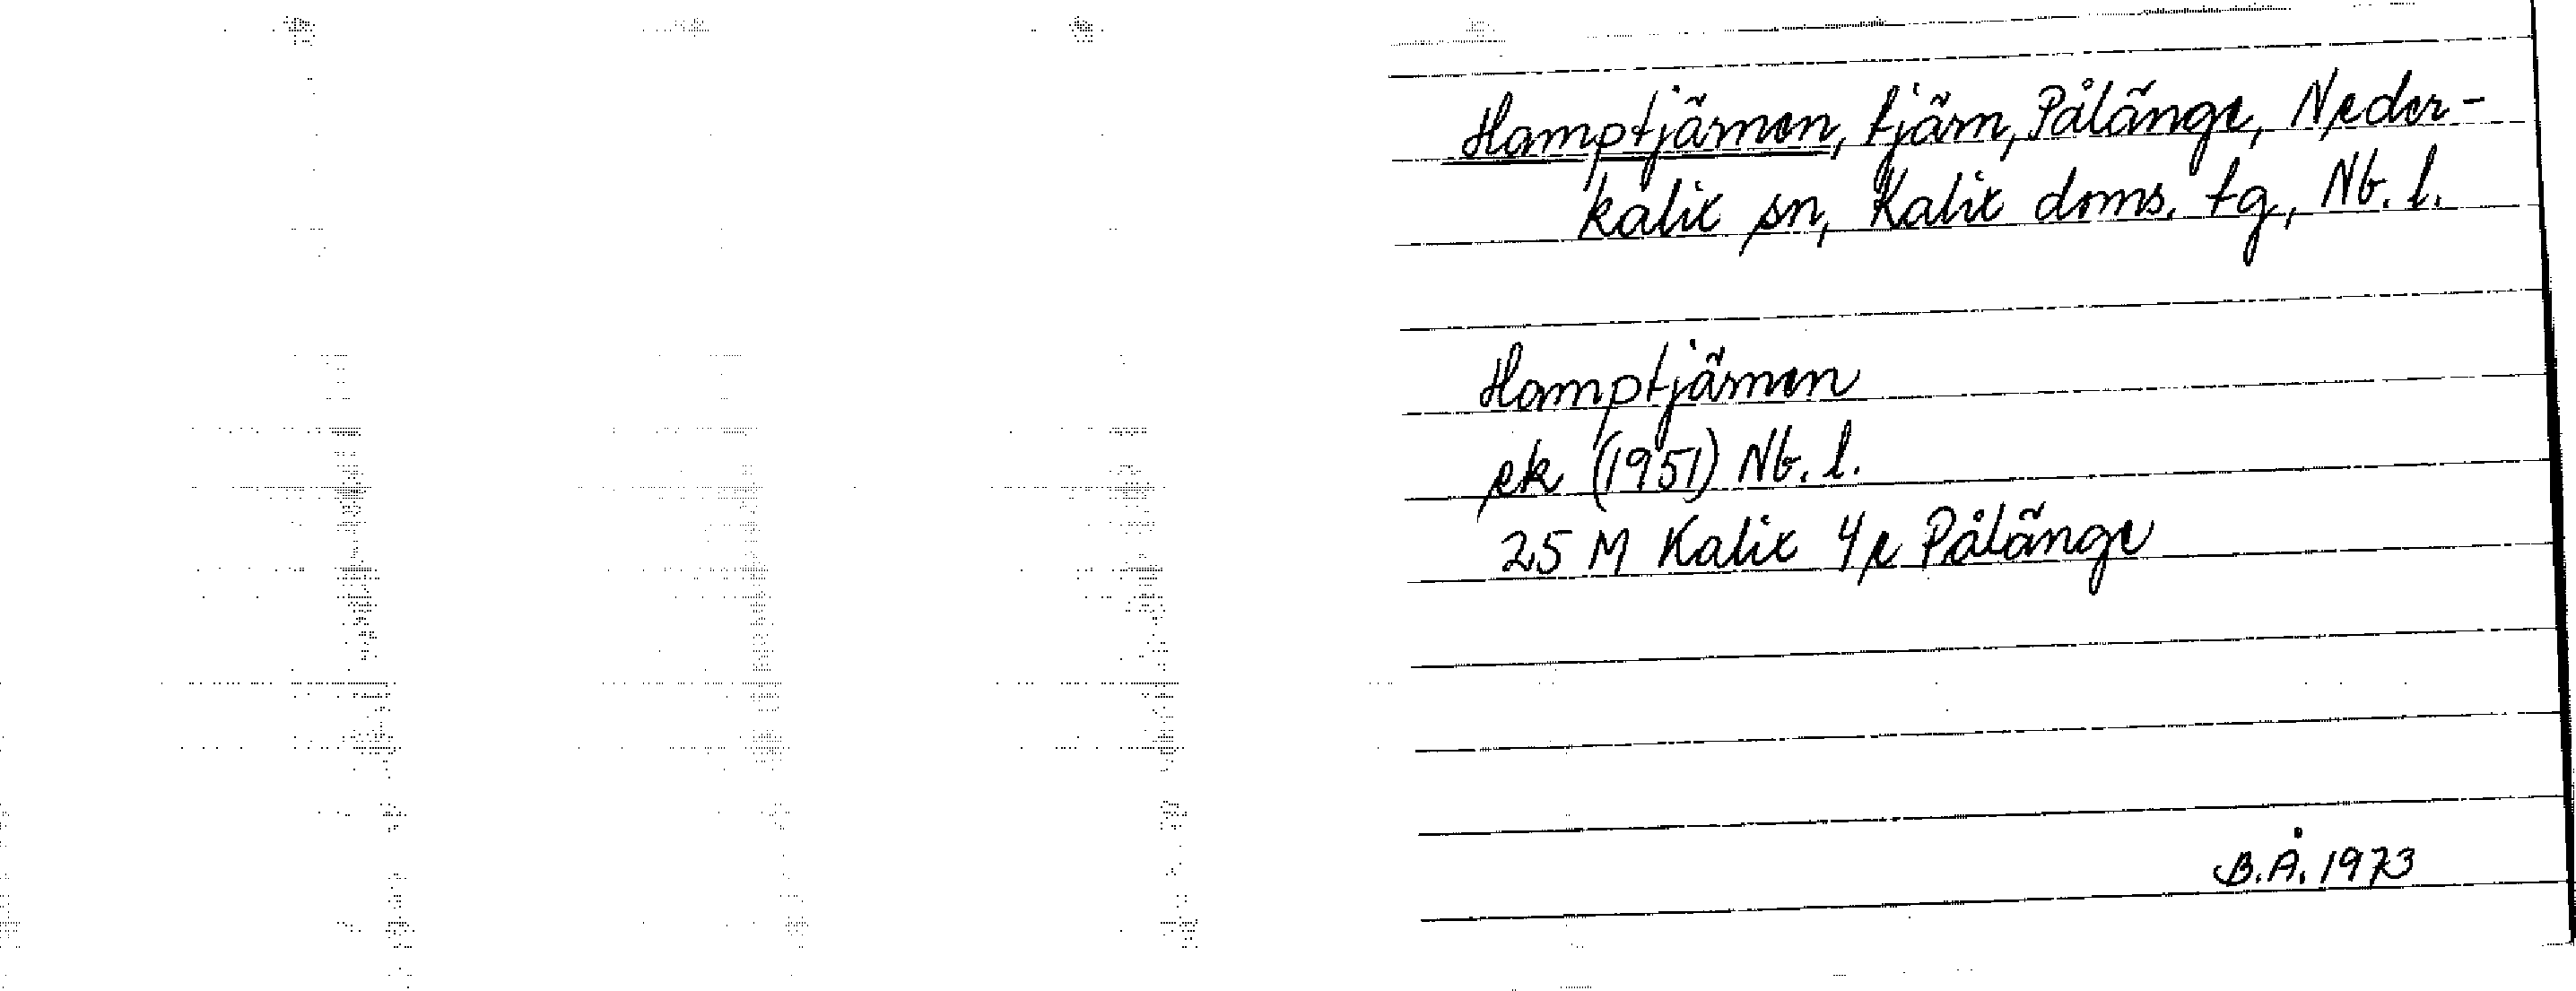 Hamptjärnen, tjärn, Pålänge, Neder-
kalix sn, Kalix doms. tg, Nb. l.
Hamptjärnen
ek (1951) Nb. l.
25 M Kalix 4e Pålänge
B.Å. 1973